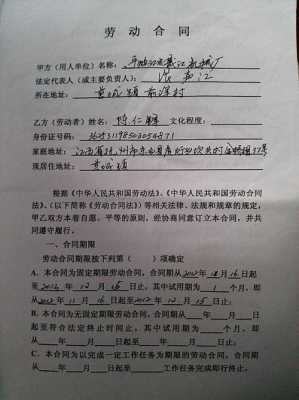 劳动合同
甲方（用人单位）名称：
法定代表人（或主要负责人）：
所在地址：黄城镇
乙方（劳动者）姓名：陈仁 文化程度：
身份证号码：
家庭地址：江西省抚州市
现居住地：黄城镇
根据《中华人民共和国劳动法》、《中华人民共和国劳动合同
法》、（以下简称《劳动合同法》）等相关法律、法规和规章的规定，
甲乙双方本着自愿、平等的原则，经协商同意订立本合同，并共
同遵守履行。
一、合同期限
劳动合同期限按下列第（ ）项确定
A. 本合同为固定期限劳动合同，合同期从2012年 月16日起
至2016年12月15日止，其中试用期为1个月，即
从2012年11月16日起至2012年12月15日止。
B. 本合同为无固定期限劳动合同，合同期从 年 月 日
起至符合法定终止时间止，其中试用期为 个月，即
从 年 月 日起至 年 月 日止。
C. 本合同为以完成一定工作任务为期限的劳动合同，合同期
从 年 月 日起至 工作任务完成即行终止。